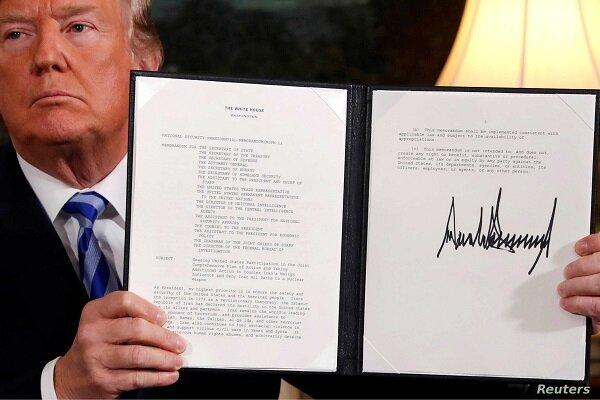 THE WHITE HOUSE
WASHINGTON
NATIONAL SECURITY PRESIDENTIAL MEMORANDUM/NSPM 11
MEMORANDUM FOR THE SECRETARY OF STATE
THE SECRETARY OF THE TREASURY
THE SECRETARY OF DEFENSE
THE ATTORNEY GENERAL
THE SECRETARY OF ENERGY
THE SECRETARY OF HOMELAND SECURITY
THE ASSISTANT TO THE PRESIDENT AND CHIEF OF
STAFF
THE UNITED STATES TRADE REPRESENTATIVE
THE UNITED STATES PERMANENT REPRESENTATIVE
TO THE UNITED NATIONS
THE DIRECTOR OF NATIONAL INTELLIGENCE
THE DIRECTOR OF THE CENTRAL INTELLIGENCE
AGENCY
THE ASSISTANT TO THE PRESIDENT FOR NATIONAL
SECURITY AFFAIRS
THE COUNSEL TO THE PRESIDENT
THE ASSISTANT TO THE PRESIDENT FOR ECONOMIC
POLICY
THE CHAIRMAN OF THE JOINT CHIEFS OF STAFF
THE DIRECTOR OF THE FEDERAL BUREAU OF
INVESTIGATION
SUBJECT: Ceasing United States Participation in the Joint
Comprehensive Plan of Action and Taking
Additional Action to Counter Iran's Malign
Influence and Deny Iran All Paths to a Nuclear
Weapon
As President, my highest priority is to ensure the safety and
security of the United States and the American people. Since
its inception in 1979 as a revolutionary theocracy, the Islamic
Republic of Iran has declared its hostility to the United States
and its allies and partners. Iran remains the world's leading
sponsor of terrorism, and provides assistance to
Hamas, the Taliban, al-Qa'ida, and other terrorist
Iran also continues to fuel sectarian violence in
and support vicious civil wars in Yemen and Syria. It
human rights abuses, and arbitrarily detains
(b) This memorandum shall be implemented consistent with
applicable law and subject to the availability of
appropriations.
(c) This memorandum is not intended to, and does not,
create any right or benefit, substantive or procedural,
enforceable at law or in equity by any party against the
United States, its departments, agencies, or entities, its
officers, employees, or agents, or any other person.
Reuters